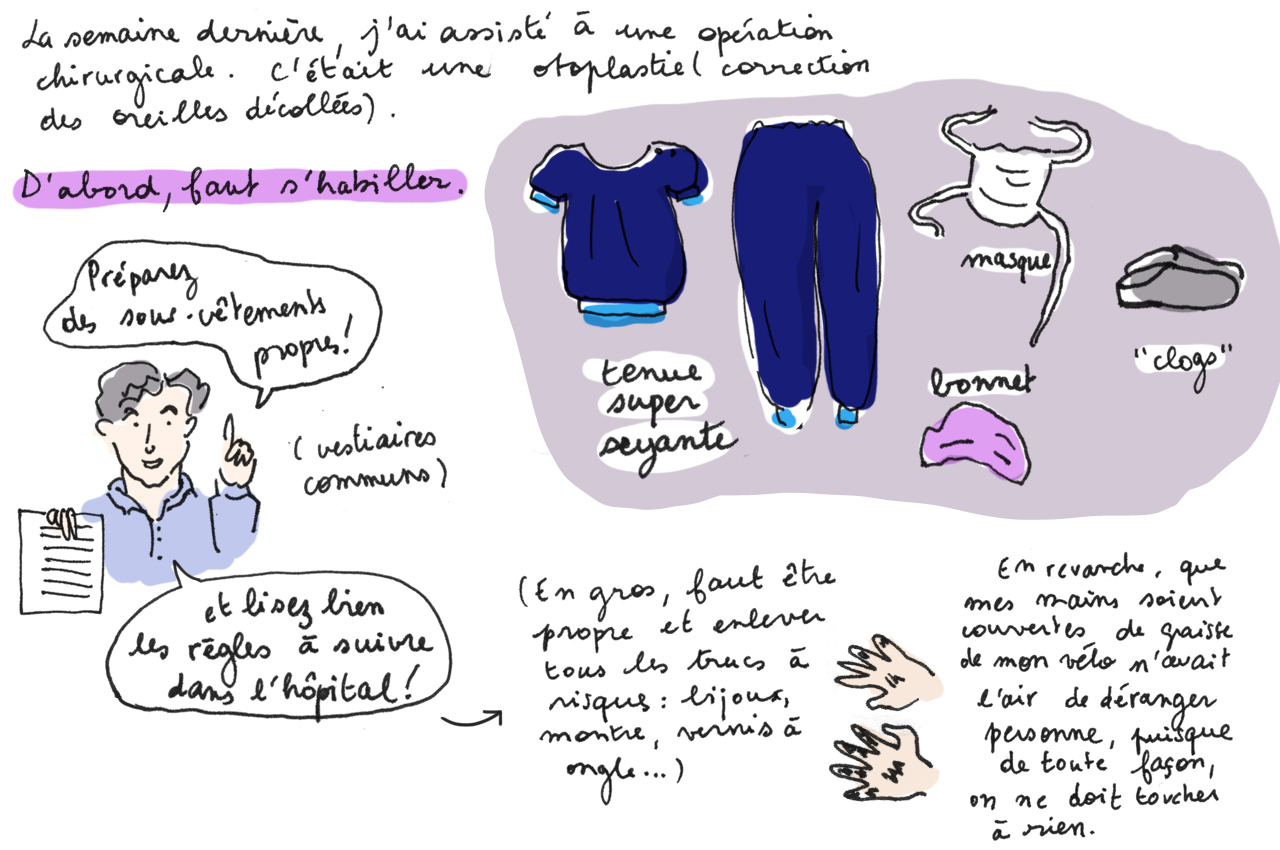 La semaine dernière, j'ai assisté à une opération
chirurgicale. C'était une otoplastie (correction
des oreilles décollées).
D'abord, faut s'habiller.
Préparez
des sous-vêtements
propres!
(vestiaires
communs)
et lisez bien
les règles à suivre
dans l'hôpital!
tenue
super
seyante
masque
bonnet
"clogs"
(En gros, faut être
propre et enlever
tous les trucs à
risque : bijoux,
montre, vernis à
ongle...)
En revanche, que
mes mains soient
couvertes de graisse
de mon vélo n'avait
l'air de déranger
personne, puisque
de toute façon,
on ne doit toucher
à rien.